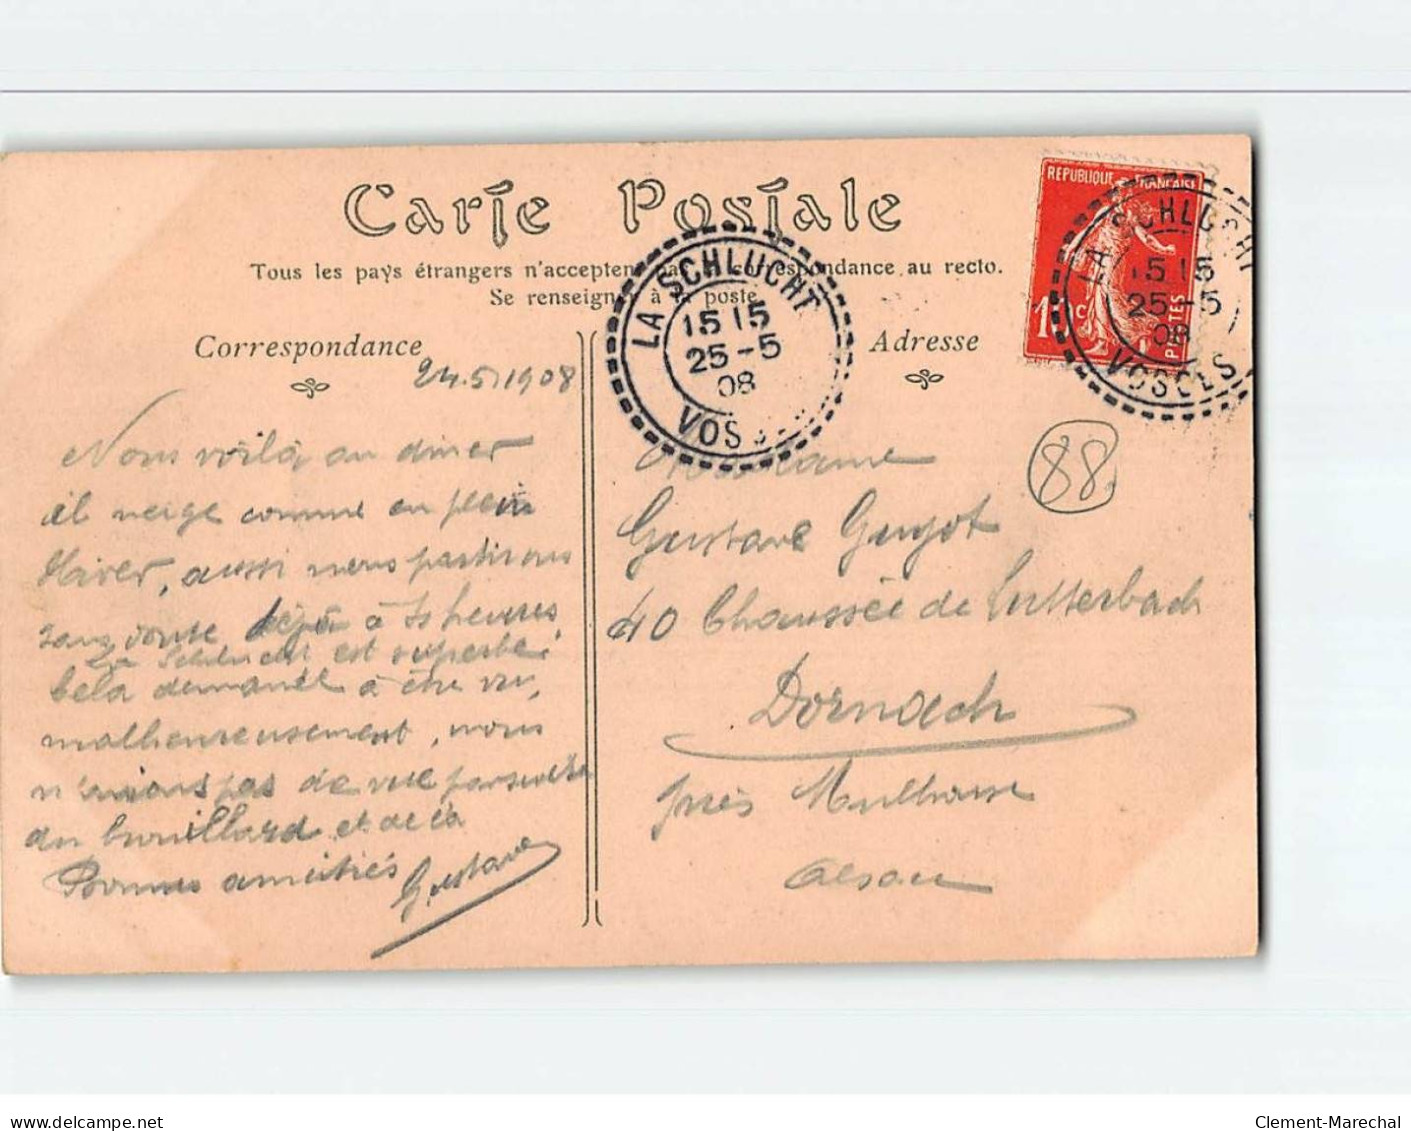 Carte Postale
Tous les pays étrangers n'acceptent pas la correspondance au recto.
Se renseigner à la poste
Correspondance
Adresse
24.5.1908
Nous voilà au diner
il neige comme en plein
Hiver, aussi nous partirons
sans doute déjà à heures
La Schlucht est superbe.
Cela demande à être vu,
malheureusement, nous
n'avions pas de vue par suite
du brouillard et de là
Bonnes amitiés
Gustave
Madame
Gustave Guyot
40 Chaussée de Lutterbach
Dornach
près Mulhouse
Alsace
88
REPUBLIQUE FRANÇAISE
10c
POSTES
LA SCHLUCHT
15 15
25-5
08
VOSGES
LA SCHLUCHT
15 15
25-5
08
VOSGES
www.delcampe.net
Clement-Marechal